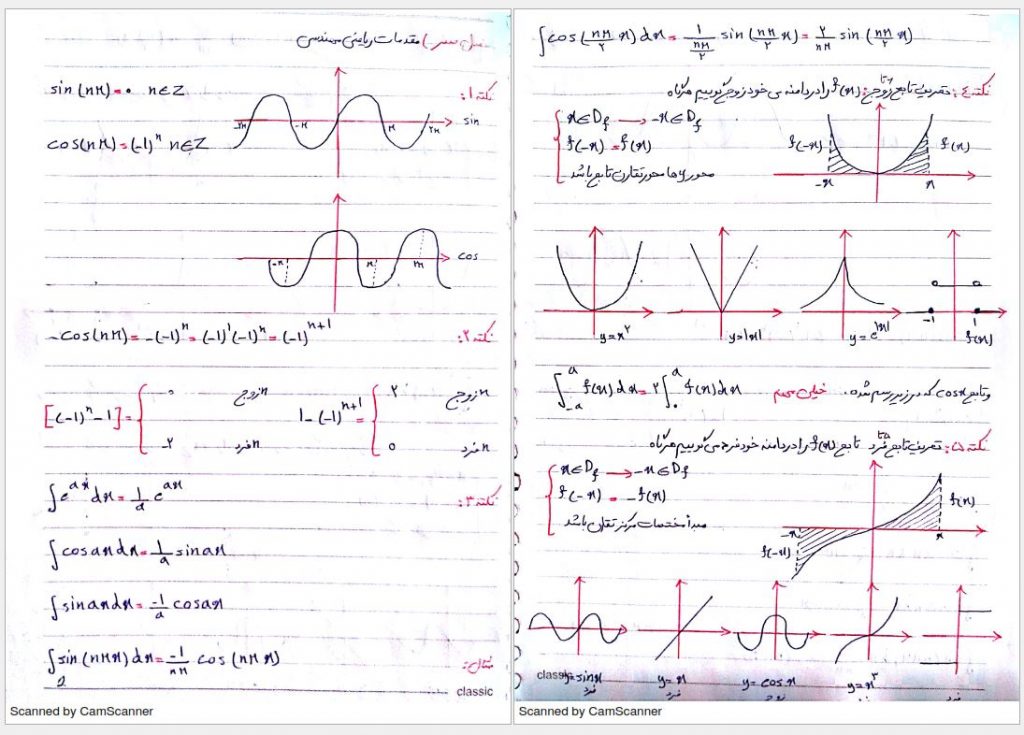 فصل صفر) مقدمات ریاضی مهندسی
نکته ۱:
sin(nπ)=۰ n∈Z
-۲π -π π ۲π sin
cos(nπ)=(-1)^n n∈Z
-π π ۲π cos
نکته ۲: -cos(nπ)= -(-1)^n = (-1)^1(-1)^n = (-1)^{n+1}
[(-1)^n -1] = { ۰ n زوج
-۲ n فرد
1-(-1)^{n+1} = { ۲ n زوج
۰ n فرد
نکته ۳: ∫e^{ax}dx = 1/a e^{ax}
∫cosaxdx = 1/a sinax
∫sinaxdx = -1/a cosax
مثال: ∫sin(nπx)dx = -1/nπ cos(nπx)
2
classic
Scanned by CamScanner
∫cos(nπ/۲ x)dx = 1/(nπ/۲) sin(nπ/۲ x) = ۲/nπ sin(nπ/۲ x)
نکته ۴: تعریف تابع زوج: تابع f(x) را در دامنه ی خود زوج گوییم هرگاه
x∈D_f → -x∈D_f
f(-x) = f(x)
محور y ها محور تقارن تابع باشد
f(-x) f(x)
-x x
-1 1
y=x^۲ y=|x| y=e^{|x|} f(x)
و تابع cosx که در زیر رسم شده. خیلی مهم ∫_{-a}^{a} f(x)dx = ۲∫_{۰}^{a} f(x)dx
نکته ۵: تعریف تابع فرد تابع f(x) را در دامنه خود فرد می گوییم هرگاه
x∈D_f → -x∈D_f
f(-x) = -f(x)
مبدأ مختصات مرکز تقارن باشد
f(x)
-x x
f(-x)
classic
y=sinx y=x y=cosx y=x^۳
فرد فرد زوج
Scanned by CamScanner